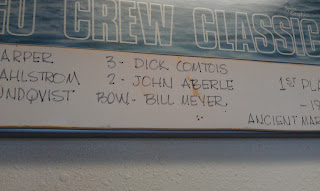 CREW CLASSIC
ARPER 3- DICK COMTOIS
AHLSTROM 2- JOHN ABERLE 1ST PLA
NDQVIST BOW- BILL MEYER, -19
ANCIENT MAR